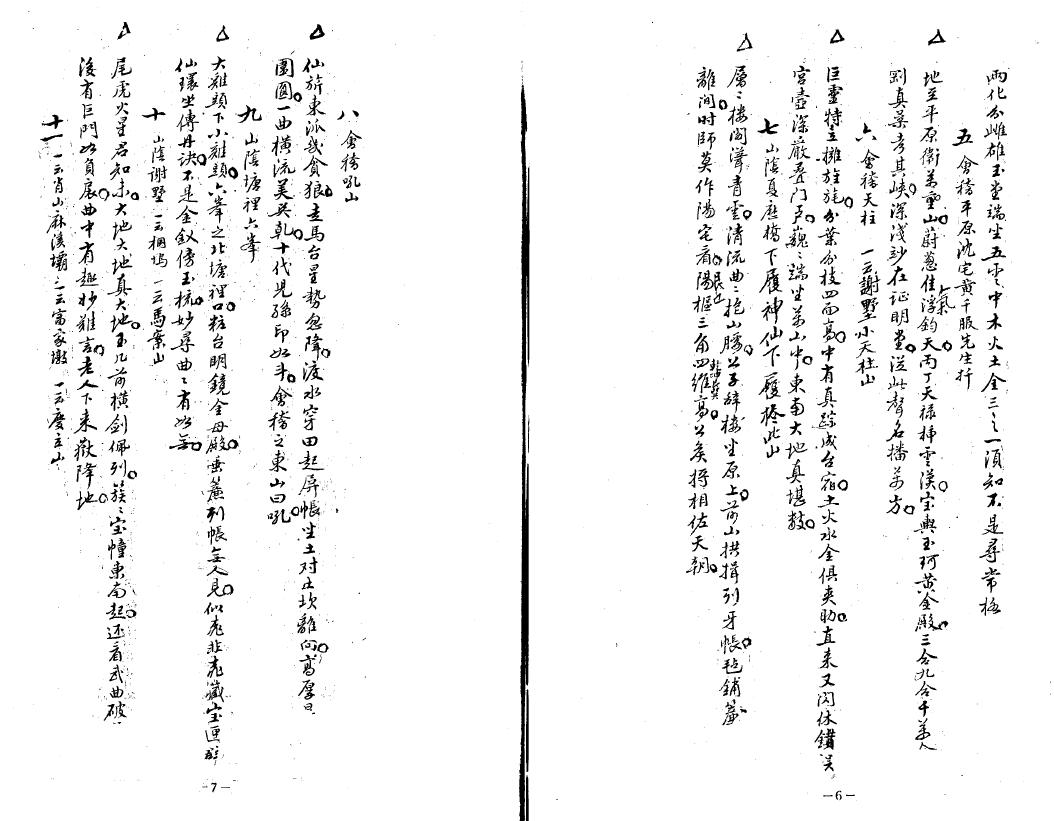 兩化分雌雄玉堂端坐五雲中木火土金三之一須知不是尋常極
五 會稽平原沈宅黃千服先生扦
△ 地至平原衛萬重山蔚蔥佳氣上浮鈞天丙丁天祿掃雲漢宝輿玉珂黃金殿三合九合千萬人
剴真葉考其峽深淺訣在証明堂從此聲名播萬方
六 會稽天柱 一云謝墅小天柱山
△ 巨靈特立擁旌旄分葉分枝四面高中有真踪成台宿土火水金俱夾助直来又閃休錯误
宮壺深嚴叠门户巍々端坐萬山中東南大地真堪数
七 山陰夏庶橋下履神仙下履格此山
△ 層々樓閣聳青雲清流曲々抱山腰公子辞樓坐原上前山拱揖列牙帳毡鋪簾
離间时師莫作陽宅看陽樞三角四维高公矦将相佐天朝
-6-
八 會稽吼山
△ 仙旂東派發貪狼走馬台星勢忽降渡水穿田起屏帳坐土对土坎離向高厚
團圓一曲橫流美吳乾十代児孫印如斗會稽之東山曰吼
九 山陰塘裡六峯
△ 大雞頭下小雞頭六峯之北塘裡口粧台明鏡金母殿垂簾列帳無人見似尨非尨藏宝匣群
仙環坐傳丹訣不是金釵傍玉梳妙尋曲々有如無
十 山陰謝墅 一云桐塢 一云馬案山
△ 尾虎火星君知未大地大地真大地玉几前橫劍佩列簇々宝幢東南起还看武曲破
後有巨門如負扆曲中有趣妙難言老人下来歡降地
十一 一云肖山麻溪壩 一云富家墩 一云度立山
-7-